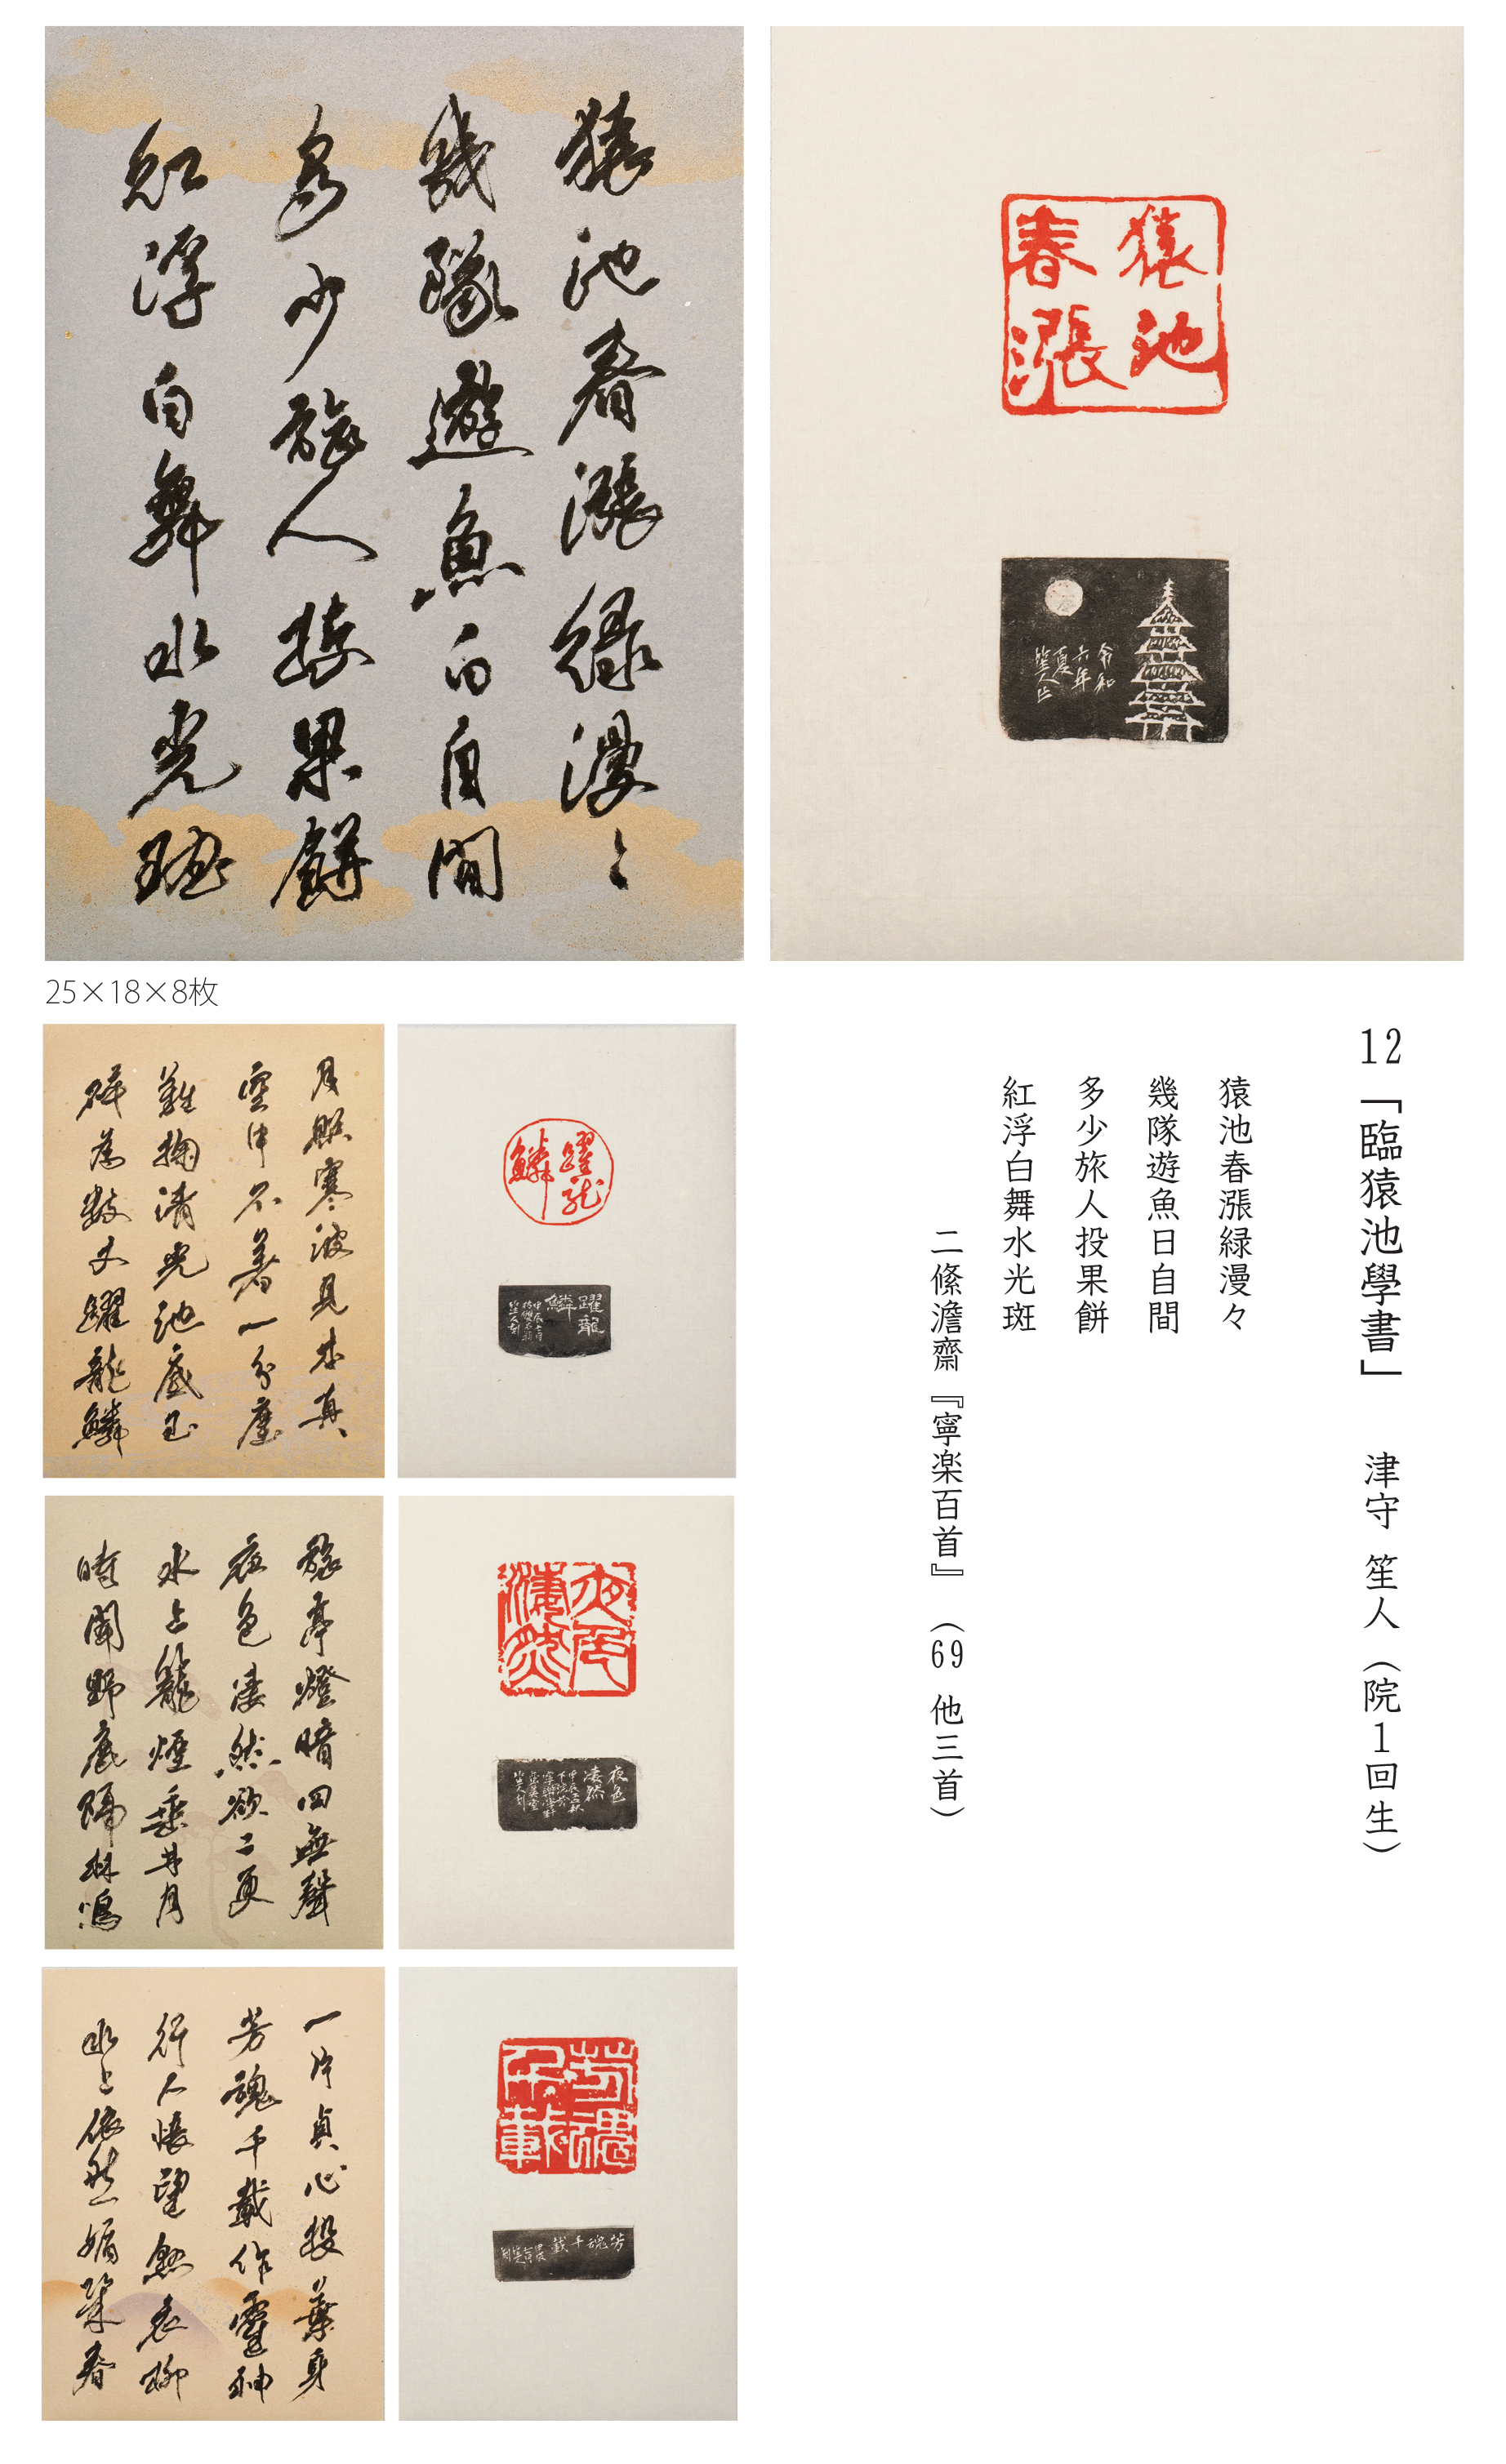 猿池春漲緑漫〻
幾隊遊魚日自間
多少旅人投果餅
紅浮白舞水光斑
猿池
春漲
令和
六年
夏
笙人作
25×18×8枚
12「臨猿池學書」 津守 笙人（院１回生）
猿池春漲緑漫々
幾隊遊魚日自間
多少旅人投果餅
紅浮白舞水光斑
二條澹齋『寧楽百首』（69 他三首）
月照寒波見本真
空中不著一分塵
難掬清光池底玉
砕為数丈躍龍鱗
躍龍
鱗
躍龍
鱗
笙人刻
旅亭燈暗四無聲
夜色凄然欲二更
水上籠煙垂廿月
時聞野鹿隔林鳴
夜色
凄然
夜色
凄然
笙人刻
一片貞心投棄身
芳魂千載作靈神
行人悵望懸衣柳
水上依然春
芳魂
千載
芳魂千載